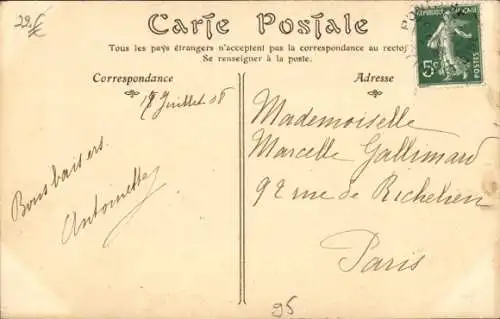 29.
Carte Postale
Tous les pays étrangers n'acceptent pas la correspondance au recto
Se renseigner à la poste.
Correspondance
Adresse
Juillet 08
Bons baisers.
Antoinette
Mademoiselle
Marcelle Gallimard
92 rue de Richelieu
Paris
95
RÉPUBLIQUE FRANÇAISE
5c
POSTES